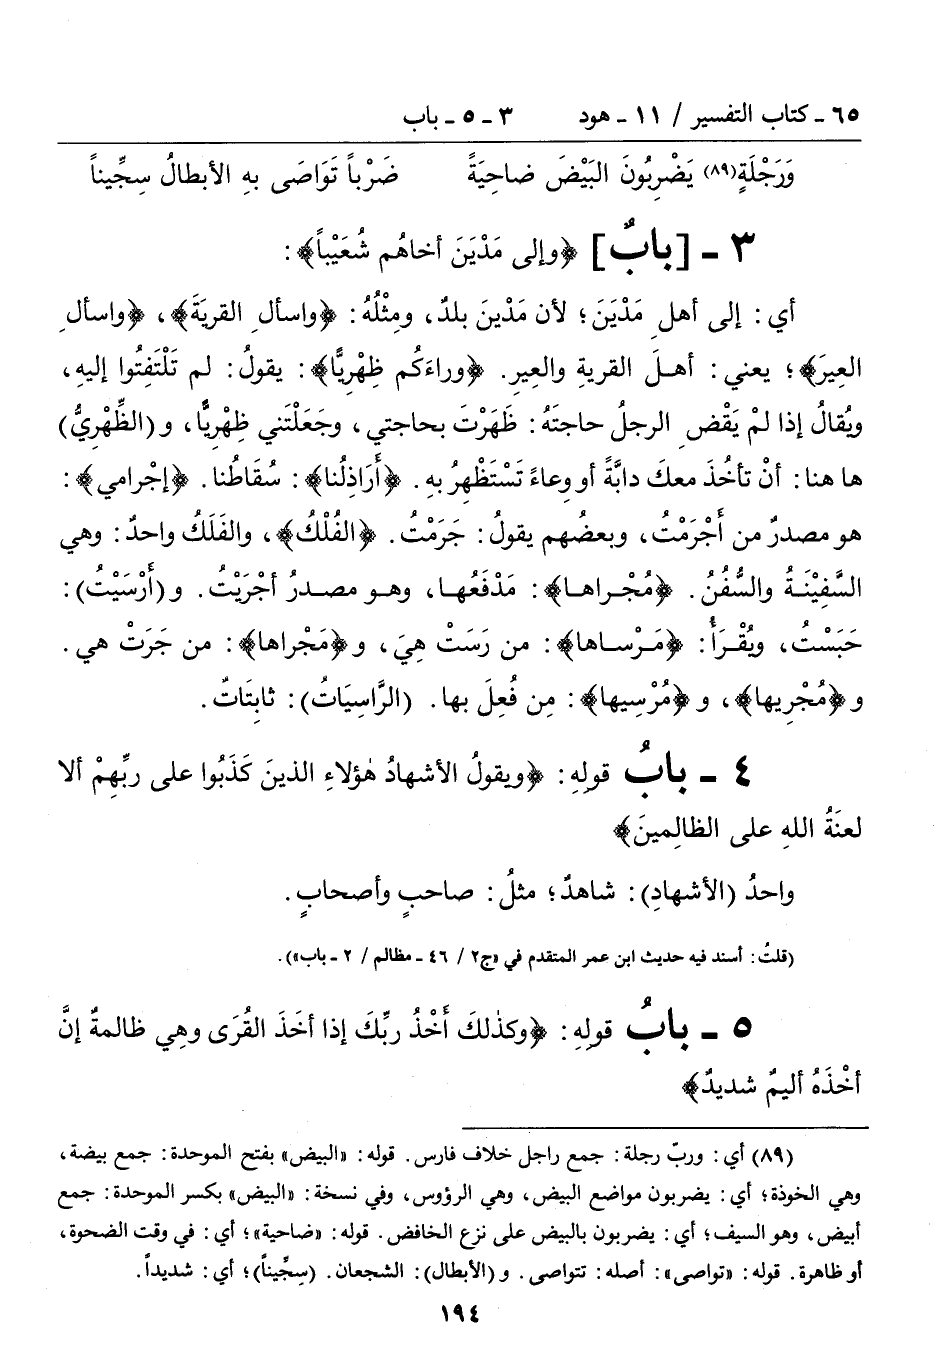 ٦٥ ـ كتاب التفسير / ١١ ـ هود ٣ ـ ٥ ـ باب
وَرَجْلَةٍ(٨٩) يَضْرِبُونَ البَيْضَ ضاحِيَةً ضَرْباً تَوَاصَى بهِ الأبطالُ سِجِّيناً
٣ ـ [بابٌ] ﴿وإلى مَدْيَنَ أخاهُم شُعَيْباً﴾:
أي: إلى أهلِ مَدْيَنَ؛ لأن مَدْينَ بلدٌ، ومِثْلُهُ: ﴿واسألِ القريَةَ﴾، ﴿واسألِ
العِيرَ﴾؛ يعني: أهلَ القريةِ والعيرِ. ﴿وراءَكُم ظِهْرِيًّا﴾: يقولُ: لم تَلْتَفِتُوا إليهِ،
ويُقالُ إذا لمْ يَقْضِ الرجلُ حاجتَهُ: ظَهَرْتَ بحاجتي، وجَعَلْتَني ظِهْريًّا، و(الظِّهْرِيُّ)
ها هنا: أنْ تأخُذَ معكَ دابَّةً أو وِعاءً تَسْتَظْهِرُ بهِ. ﴿أَرَاذِلُنا﴾: سُقَاطُنا. ﴿إجْرامي﴾:
هو مصدرٌ من أَجْرَمْتُ، وبعضُهم يقولُ: جَرَمْتُ. ﴿الفُلْكُ﴾، والفَلَكُ واحدٌ: وهي
السَّفِيْنَةُ والسُّفُنُ. ﴿مُجْراها﴾: مَدْفَعُها، وهو مصدرُ أجْرَيْتُ. و(أَرْسَيْتُ):
حَبَسْتُ، ويُقْرَأُ: ﴿مَرْساها﴾: من رَسَتْ هِيَ، و﴿مَجْراها﴾: من جَرَتْ هي.
و﴿مُجْرِيها﴾، و﴿مُرْسِيها﴾: مِن فُعِلَ بها. (الرَّاسِيَاتُ): ثابِتَاتٌ.
٤ ـ بابُ قولِهِ: ﴿ويقولُ الأشهادُ هٰؤلاءِ الذينَ كَذَبُوا على ربِّهِمْ ألا
لعنَةُ اللهِ على الظالِمينَ﴾
واحدُ (الأشهادِ): شاهدٌ؛ مثلُ: صاحبٍ وأصحابٍ.
(قلتُ: أسند فيه حديث ابن عمر المتقدم في «ج٢ / ٤٦ ـ مظالم / ٢ ـ باب»).
٥ ـ بابُ قولِهِ: ﴿وكذٰلكَ أَخْذُ ربِّكَ إذا أخَذَ القُرَى وهي ظالمةٌ إنَّ
أخْذَهُ أليمٌ شديدٌ﴾
(٨٩) أي: وربّ رجلة: جمع راجل خلاف فارس. قوله: «البيض» بفتح الموحدة: جمع بيضة،
وهي الخوذة؛ أي: يضربون مواضع البيض، وهي الرؤوس، وفي نسخة: «البيض» بكسر الموحدة: جمع
أبيض، وهو السيف؛ أي: يضربون بالبيض على نزع الخافض. قوله: «ضاحية»؛ أي: في وقت الضحوة،
أو ظاهرة. قوله: «تواصى»: أصله: تتواصى. و(الأبطال): الشجعان. (سِجِّيناً)؛ أي: شديداً.
١٩٤